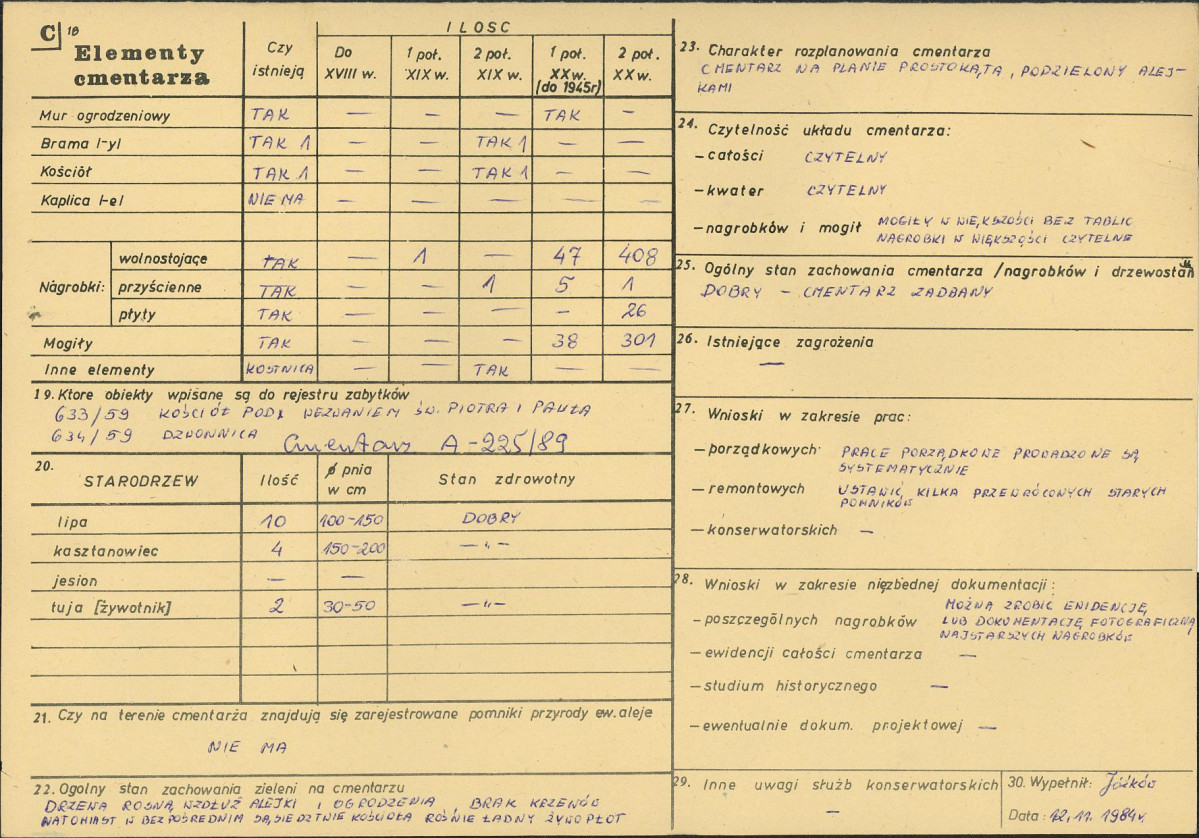 C 18
Elementy cmentarza
Czy istnieją
ILOSC
Do XVIII w.
1 poł. XIX w.
2 poł. XIX w.
1 poł. XX w. (do 1945r)
2 poł. XX w.
Mur ogrodzeniowy TAK — — — TAK —
Brama I-yl TAK 1 — — TAK 1 — —
Kościół TAK 1 — — TAK 1 — —
Kaplica I-el NIE MA — — — — —
Nagrobki:
wolnostojące TAK — 1 — 47 408
przyścienne TAK — — 1 5 1
płyty TAK — — — — 26
Mogiły TAK — — — 38 301
Inne elementy KOSTNICA — — TAK — —
19. Ktore obiekty wpisane są do rejestru zabytków
633/59 KOŚCIÓŁ POD WEZWANIEM ŚW. PIOTRA I PAWŁA
634/59 DZWONNICA Cmentarz A-225/89
20.
STARODRZEW Ilość ø pnia w cm Stan zdrowotny
lipa 10 100-150 DOBRY
kasztanowiec 4 150-200 —"—
jesion — —
tuja [żywotnik] 2 30-50 —"—
21. Czy na terenie cmentarża znajdują się zarejestrowane pomniki przyrody ew. aleje
NIE MA
22. Ogolny stan zachowania zieleni na cmentarzu
DRZEWA ROSNĄ WZDŁUŻ ALEJKI I OGRODZENIA, BRAK KRZEWÓW
NATOMIAST W BEZPOŚREDNIM SĄSIEDZTWIE KOŚCIOŁA ROŚNIE ŁADNY ŻYWOPŁOT
23. Charakter rozplanowania cmentarza
CMENTARZ NA PLANIE PROSTOKĄTA, PODZIELONY ALEJ-
KAMI
24. Czytelność układu cmentarza:
— całości CZYTELNY
— kwater CZYTELNY
— nagrobków i mogił MOGIŁY W WIĘKSZOŚCI BEZ TABLIC
NAGROBKI W WIĘKSZOŚCI CZYTELNE
25. Ogólny stan zachowania cmentarza /nagrobków i drzewostan
DOBRY — CMENTARZ ZADBANY
26. Istniejące zagrożenia
—
27. Wnioski w zakresie prac:
— porządkowych PRACE PORZĄDKOWE PROWADZONE SĄ
SYSTEMATYCZNIE
— remontowych USTAWIĆ KILKA PRZEWRÓCONYCH STARYCH
POMNIKÓW
— konserwatorskich —
28. Wnioski w zakresie nięzbędnej dokumentacji:
— poszczególnych nagrobków MOŻNA ZROBIĆ EWIDENCJĘ
LUB DOKUMENTACJĘ FOTOGRAFICZNĄ
NAJSTARSZYCH NAGROBKÓW
— ewidencji całości cmentarza —
— studium historycznego —
— ewentualnie dokum. projektowej —
29. Inne uwagi służb konserwatorskich
—
30. Wypełnił: Jóźków
Data: 12.11.1984r.